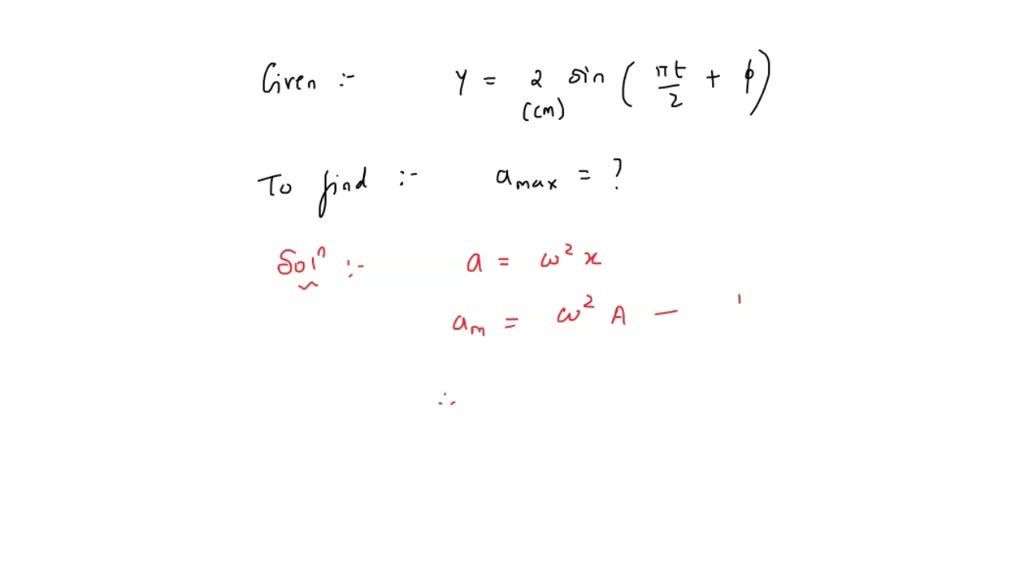 Given :- Y = 2 sin ( πt/2 + φ )
(cm)
To find :- a max = ?
Solⁿ :- a = ω² x
aₘ = ω² A — 1
∴